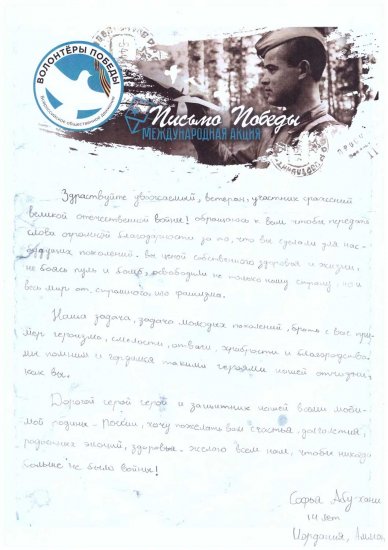 ВОЛОНТЁРЫ ПОБЕДЫ
Всероссийское общественное движение
Письмо Победы
МЕЖДУНАРОДНАЯ АКЦИЯ
Здраствуйте уважаемый, ветеран, участник
великой отечественной войне! обращаюсь к вам чтобы передать
слова огромной благодарности за то, что вы сделали для нас-
будущих поколений. вы ценой собственного здоровья и жизни,
не боясь пуль и бомб, освободили не только нашу страну, но и
весь мир от страшного, фашизма.
Наша задача, задача молодых поколений, брать с вас при-
мер героизма, смелости, отваги, храбрости и благородства.
мы помним и гордимся такими героями нашей отчизны,
как вы.
Дорогой герой герой и защитник нашей всеми люби-
мой родины - России, хочу пожелать вам счастья, долголетия,
радостных эмоций, здоровья. желаю всем нам, чтобы никогда
больше не было войны!
Софья Абу-хани
14 лет
Иордания, Амман